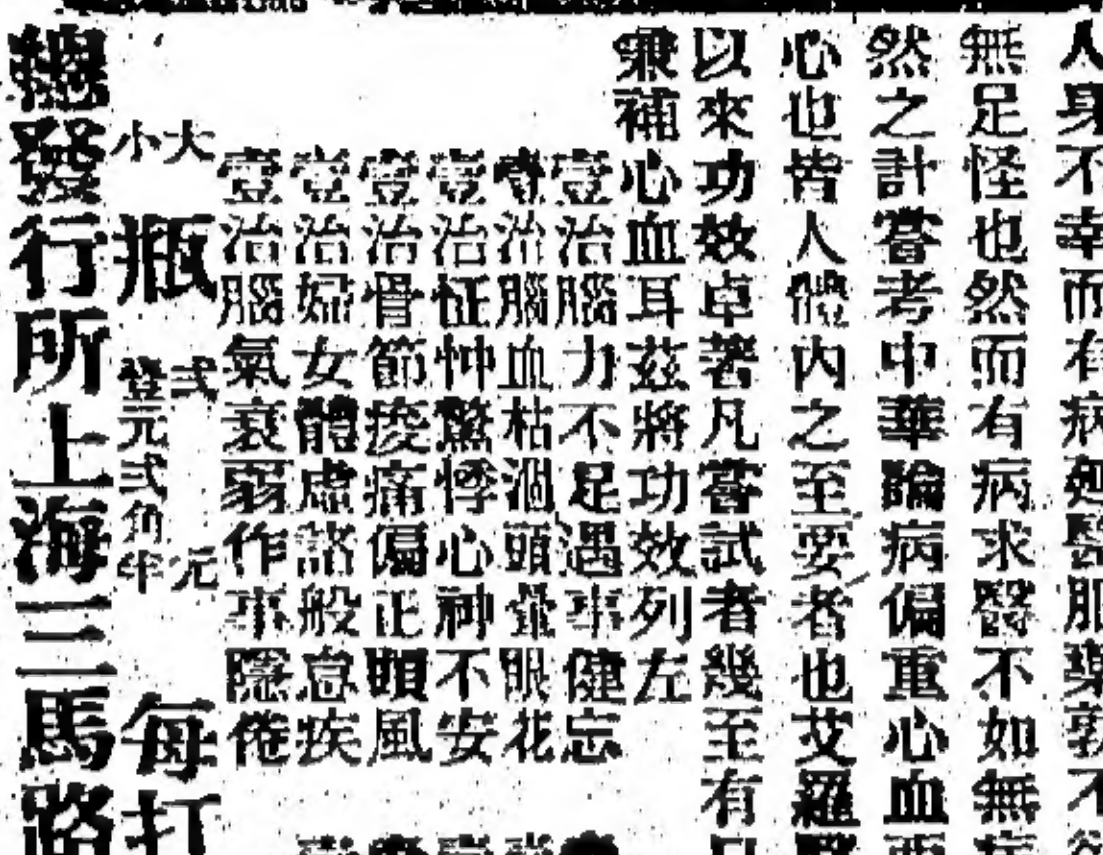 人身不幸而有病延醫服藥孰不
無足怪也然而有病求醫不如無
然之計嘗考中華論病偏重心血
心也皆人體內之至要者也艾羅
以來功效卓著凡嘗試者幾至有
兼補心血耳茲將功效列左
壹治腦力不足遇事健忘
壹治腦血枯涸頭暈眼花
壹治怔忡驚悸心神不安
壹治骨節痠痛偏正頭風
壹治婦女體虛諸般怠疾
壹治腦氣衰弱作事隱倦
大 弍 元
小 瓶 壹元弍角半 每打
總發行所上海三馬路